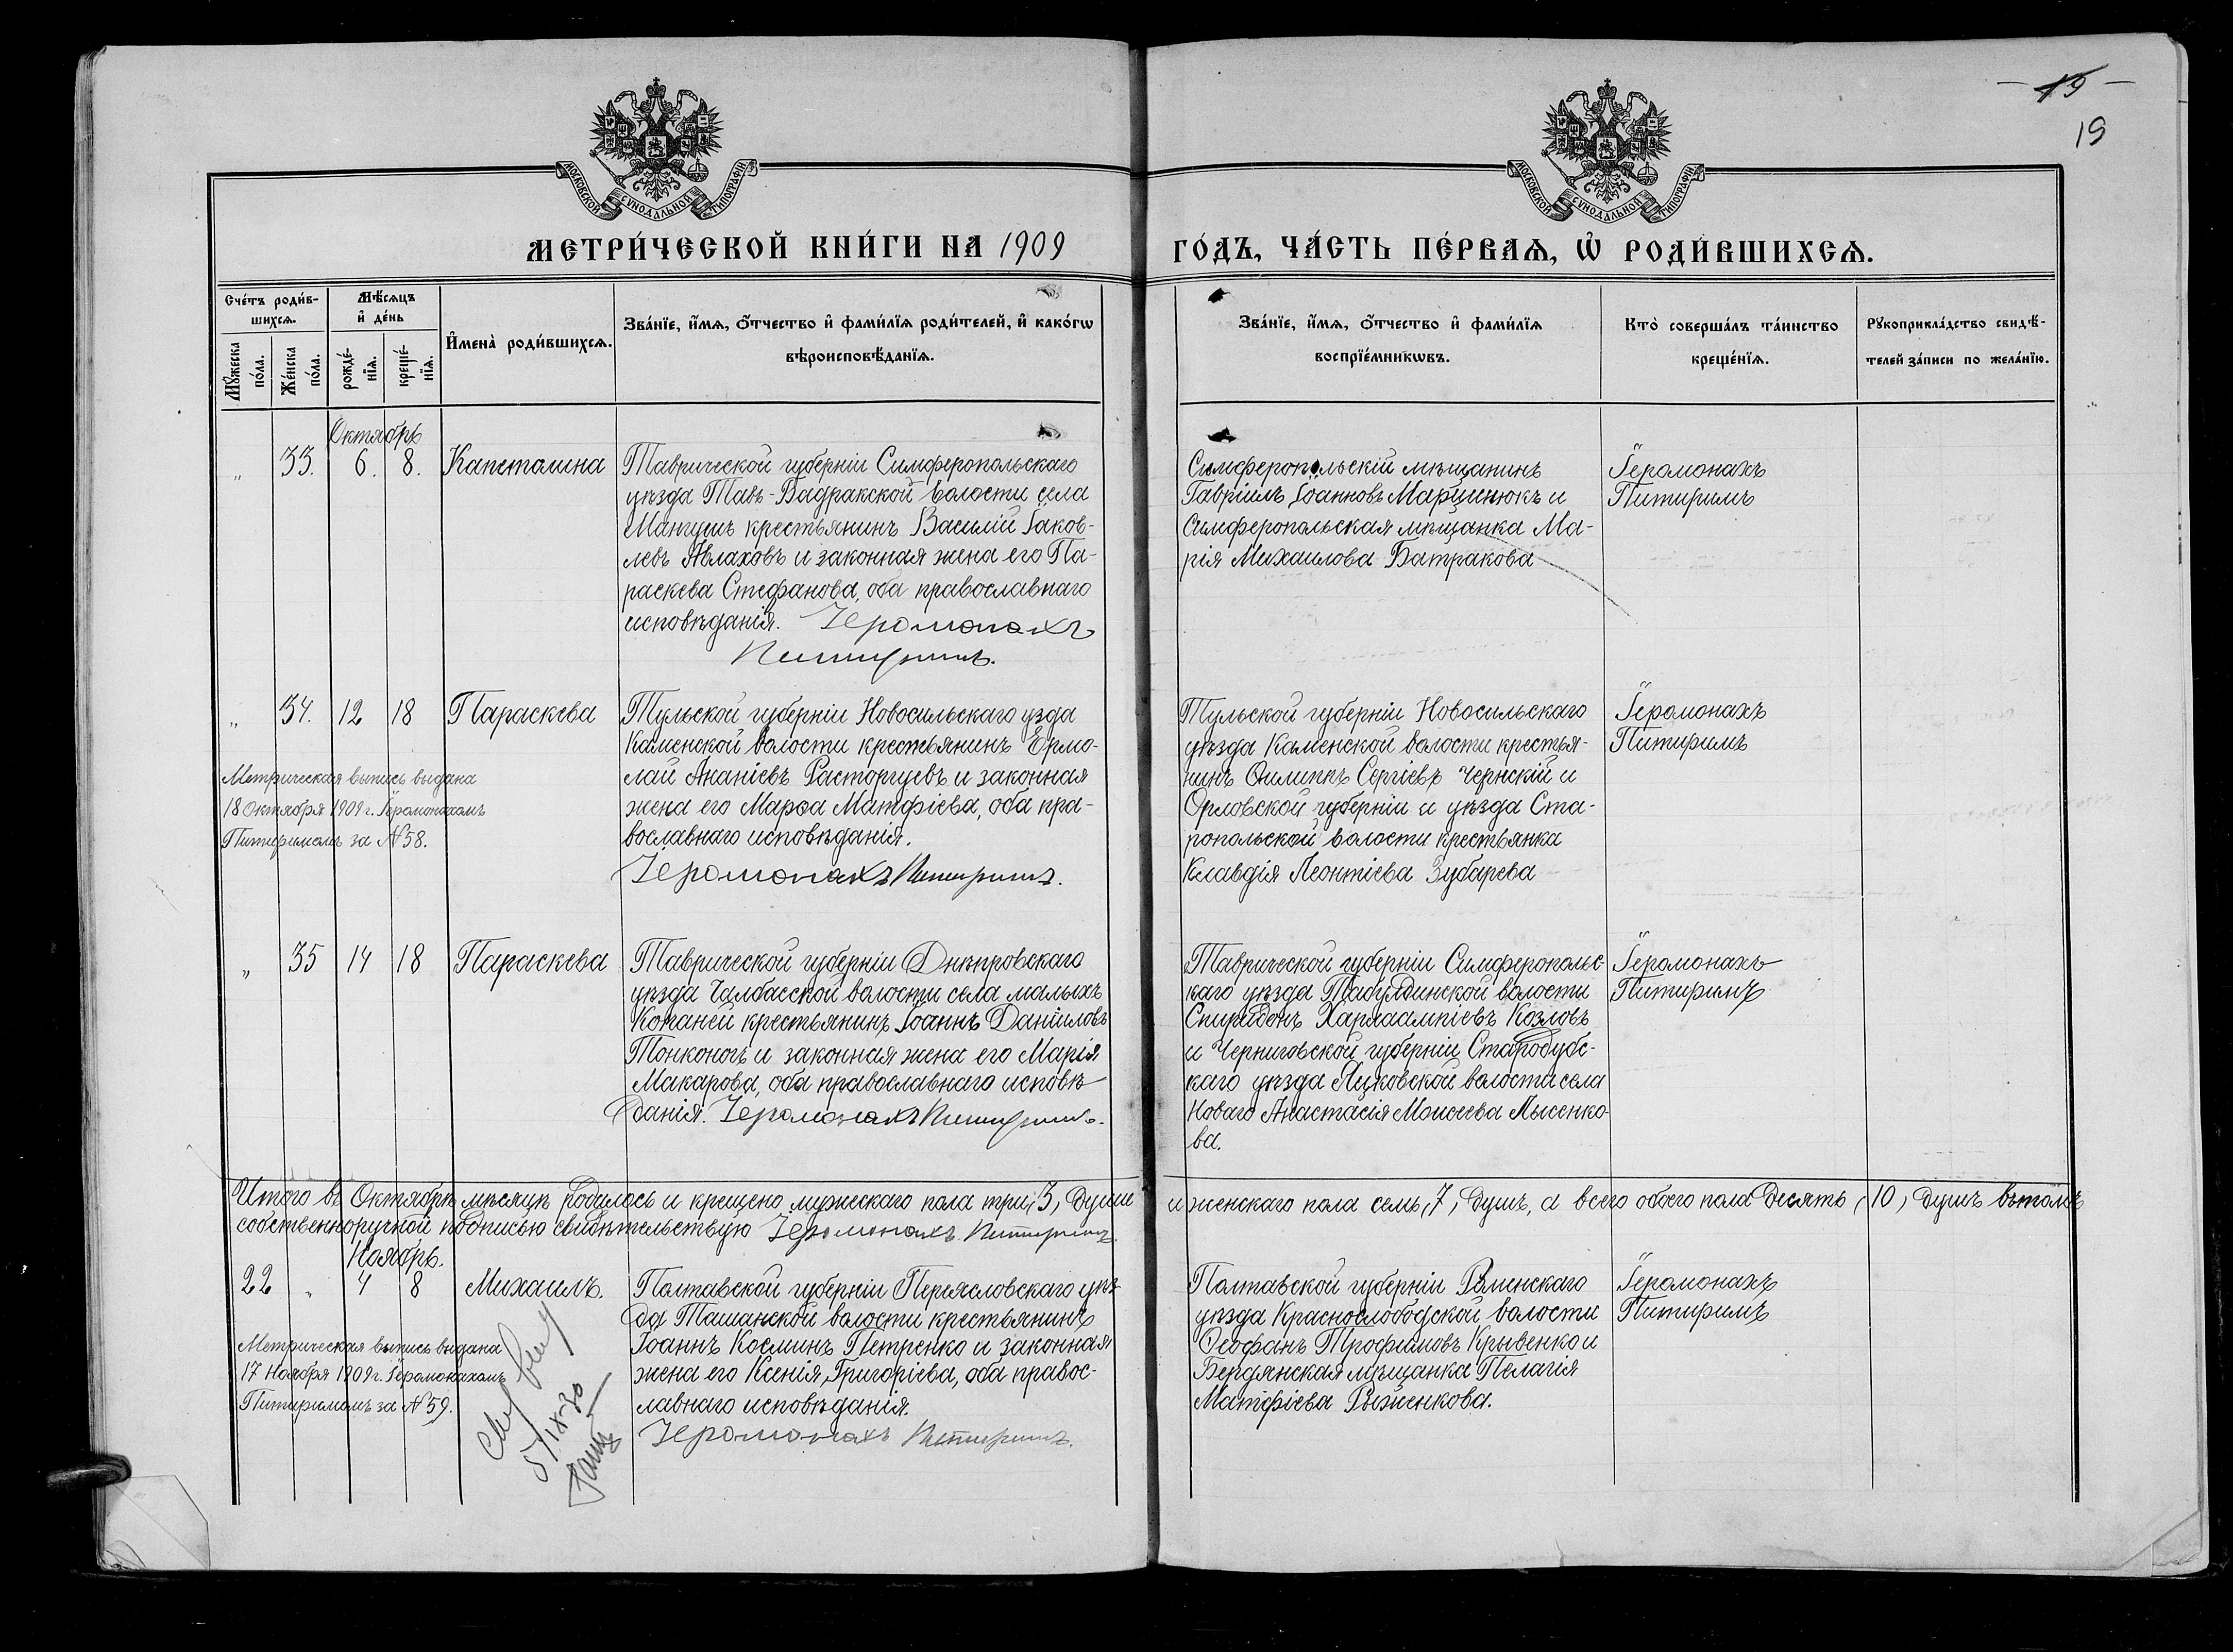 19
19
МОСКОВСКОЙ СУНОДАЛЬНОЙ ТИПОГРАФІИ
МОСКОВСКОЙ СУНОДАЛЬНОЙ ТИПОГРАФІИ
МЕТРИ́ЧЕСКОЙ КНИ́ГИ НА 1909
ГО́ДЪ, ЧА́СТЬ ПЕ́РВАѦ, Ѡ҆ РОДИ́ВШИХСѦ.
Сче́тъ роди́в-
шихсѧ.
Мꙋжеска по́ла.
Же́нска по́ла.
Мѣ́сѧцъ
и҆ де́нь
рожде́-
нїѧ.
креще́-
нїѧ.
И҆мена̀ роди́вшихсѧ.
Зва́нїе, и҆́мѧ, ѻ҆́тчество и҆ фами́лїѧ роди́телей, и҆ како́гѡ
вѣроисповѣ́данїѧ.
Зва́нїе, и҆́мѧ, ѻ҆́тчество и҆ фами́лїѧ
воспрїе́мникѡвъ.
Кто̀ соверша́лъ та́инство
креще́нїѧ.
Рꙋкоприкла́дство свидѣ́-
телей за́писи по жела́нїю.
Октябрь
„ 33. 6. 8. Капетолина
Таврической губерніи Симферопольскаго
уѣзда Тавъ-Бадракской волости села
Мангушъ крестьянинъ Василій Іаков-
левъ Авлаховъ и законная жена его Па-
раскева Стефанова, оба православнаго
исповѣданія. Іеромонахъ
Питиримъ.
Симферопольскій мѣщанинъ
Гавріилъ Іоанновъ Марценюкъ и
Симферопольская мѣщанка Ма-
рія Михаилова Батракова
Іеромонахъ
Питиримъ
„ 34. 12 18 Параскева
Метрическая выпись выдана
18 Октября 1909 г. Іеромонахомъ
Питиримомъ за № 58.
Тульской губерніи Новосильскаго узда
Каменской волости крестьянинъ Ермо-
лай Ананіевъ Расторгуевъ и законная
жена его Марѳа Матѳіева, оба пра-
вославнаго исповѣданія.
Іеромонахъ Питиримъ.
Тульской губерніи Новосильскаго
уѣзда Каменской волости крестья-
нинъ Филиппъ Сергіевъ Чернскій и
Орловской губерніи и уѣзда Ста-
ропольской волости крестьянка
Клавдія Леонтіева Зубарева
Іеромонахъ
Питиримъ
„ 35 14 18 Параскева
Таврической губерніи Днѣпровскаго
уѣзда Чалбасской волости села малыхъ
Копаней крестьянинъ Іоаннъ Даніиловъ
Тонконогъ и законная жена его Марія
Макарова, оба православнаго исповѣ-
данія. Іеромонахъ Питиримъ.
Таврической губерніи Симферопольс-
каго уѣзда Табулдинской волости
Спиридонъ Харлаампіевъ Козловъ
и Черниговской губерніи Стародубс-
каго уѣзда Яцковской волости села
Новаго Анастасія Моисеева Лысенко-
ва.
Іеромонахъ
Питиримъ
Итого въ Октябрѣ мѣсяцѣ родилось и крещено мужескаго пола три, 3, души и женскаго пола семь, 7, душъ, а всего обоего пола десять, 10, душъ въ томъ
собственноручной подписью свидѣтельствую Іеромонахъ Питиримъ.
Ноябрь.
22 „ 4 8 Михаилъ.
Метрическая выпись выдана
17 Ноября 1909 г. Іеромонахомъ
Питиримомъ за № 59.
5/IX-30
Полтавской губерніи Переясловскаго уѣз-
да Ташанской волости крестьянинъ
Іоаннъ Косминъ Петренко и законная
жена его Ксенія Григоріева, оба правос-
лавнаго исповѣданія.
Іеромонахъ Питиримъ.
Полтавской губерніи Роменскаго
уѣзда Краснослободской волости
Ѳеофанъ Трофимовъ Крывенко и
Бердянская мѣщанка Пелагія
Матѳіева Рыженкова.
Іеромонахъ
Питиримъ